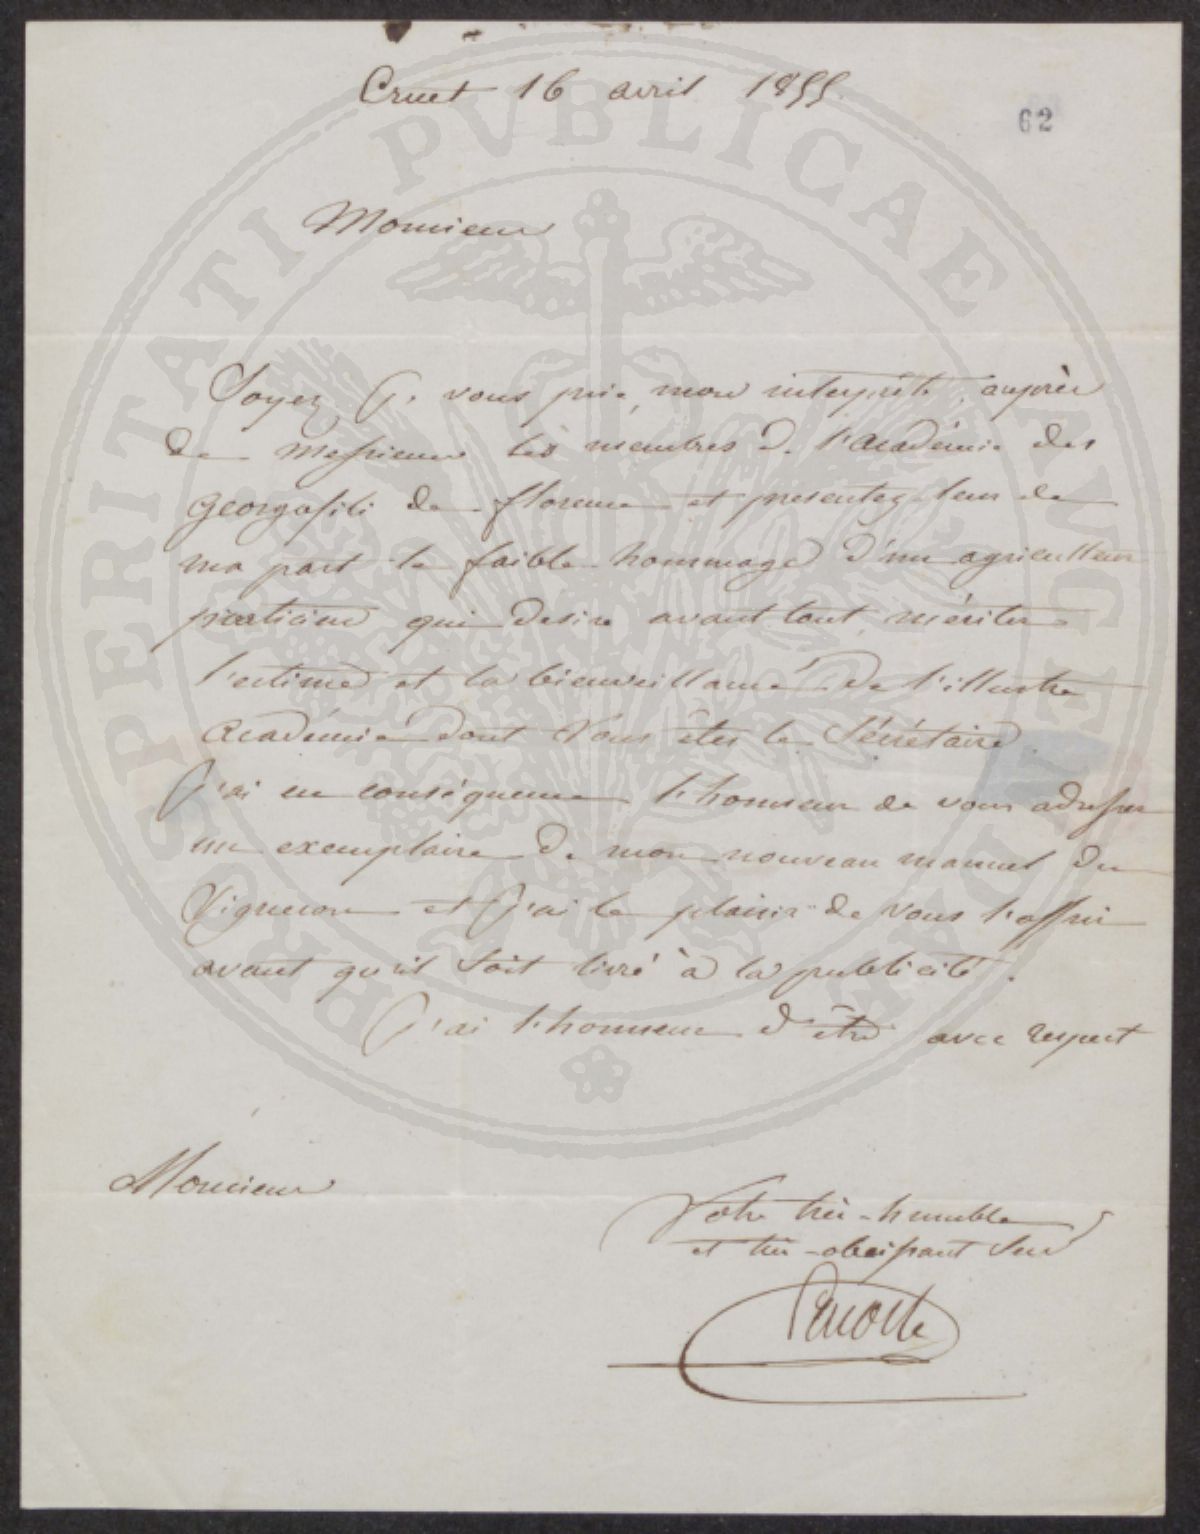 Cruet 16 avril 1855.
62
Monsieur
Soyez J. vous prie, mon interprète, auprès
de Messieurs les membres de l'académie des
georgofili de florence et presentez-leur de
ma part le faible hommage d'un agriculteur
praticien qui desire avant tout mériter
l'estime et la bienveillance de l'illustre
académie dont Vous êtes le Sécrétaire.
J'ai en conséquence l'honneur de vous adresser
un exemplaire de mon nouveau manuel du
Vigneron et J'ai le plaisir de Vous l'offrir
avant qu'il soit livré à la publicité.
J'ai l'honneur d'être avec respect
Monsieur
Votre très-humble
et très-obeissant Serv
PROSPERITATI PVBLICAE AVGENDAE